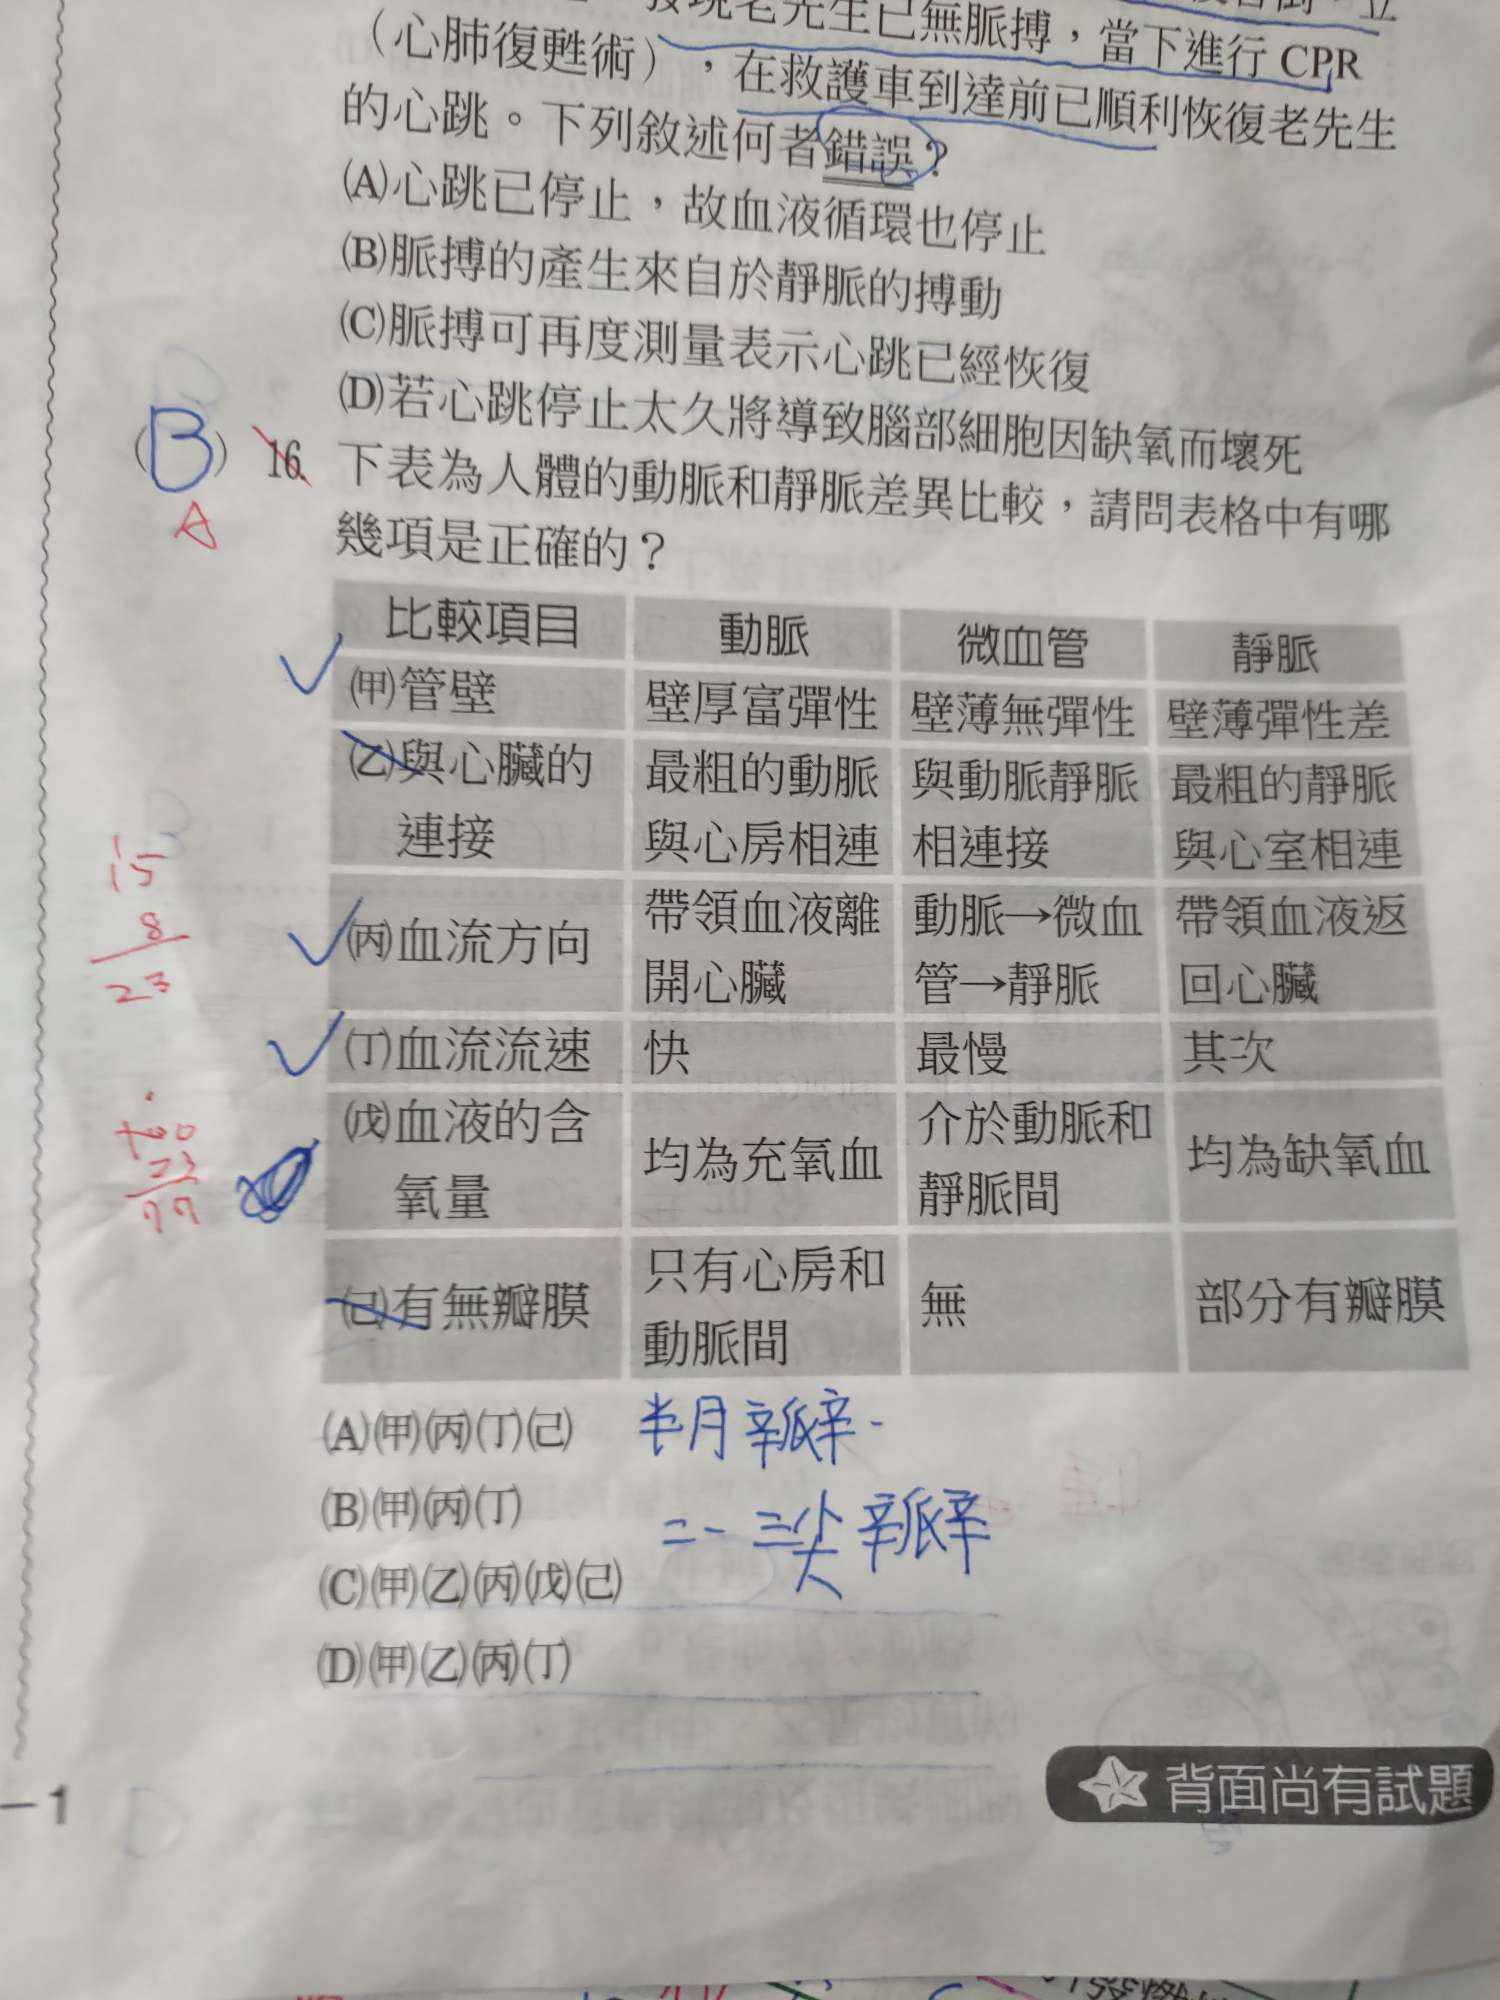 發現老先生已無脈搏，當下進行 CPR
（心肺復甦術），在救護車到達前已順利恢復老先生
的心跳。下列敘述何者錯誤？
(A)心跳已停止，故血液循環也停止
(B)脈搏的產生來自於靜脈的搏動
(C)脈搏可再度測量表示心跳已經恢復
(D)若心跳停止太久將導致腦部細胞因缺氧而壞死
(B) 16. 下表為人體的動脈和靜脈差異比較，請問表格中有哪
A
幾項是正確的？
比較項目 動脈 微血管 靜脈
(甲)管壁 壁厚富彈性 壁薄無彈性 壁薄彈性差
(乙)與心臟的 最粗的動脈 與動脈靜脈 最粗的靜脈
連接 與心房相連 相連接 與心室相連
(丙)血流方向 帶領血液離 動脈→微血 帶領血液返
開心臟 管→靜脈 回心臟
(丁)血流流速 快 最慢 其次
(戊)血液的含 均為充氧血 介於動脈和 均為缺氧血
氧量 靜脈間
(己)有無瓣膜 只有心房和 無 部分有瓣膜
動脈間
15
8
23
100
23
77
(A)(甲)(丙)(丁)(己) 半月瓣
(B)(甲)(丙)(丁)
二、三尖瓣
(C)(甲)(乙)(丙)(戊)(己)
(D)(甲)(乙)(丙)(丁)
背面尚有試題
－1